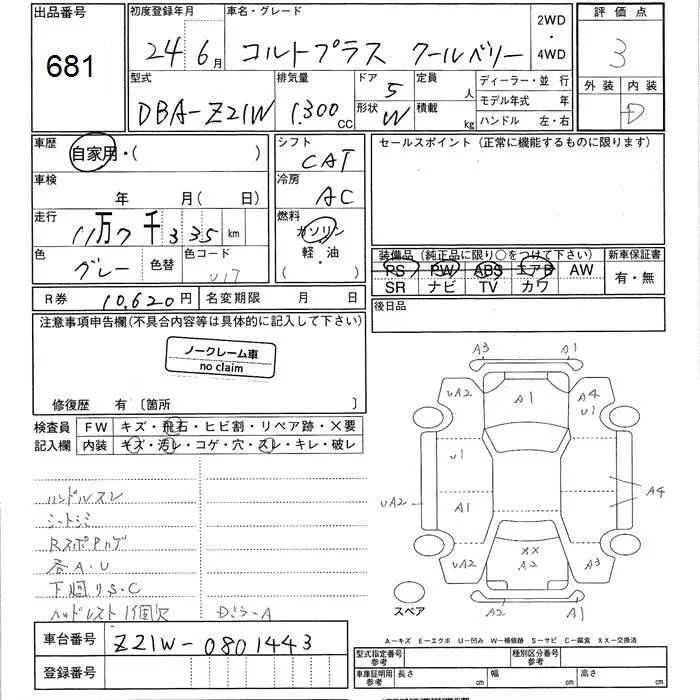 出品番号
681
初度登録年月
24年6月
車名・グレード
コルトプラス クールベリー
2WD
・
4WD
評価点
3
外装 内装
D
型式
DBA-Z21W
排気量
1,300CC
ドア
5
形状
W
定員
人
積載
kg
ディーラー・並行
モデル年式 年
ハンドル 左・右
車歴
自家用・( )
シフト
CAT
セールスポイント(正常に機能するものに限ります)
車検
年 月(日)
冷房
AC
走行
11万7千335km
燃料
ガソリン
軽・油
( )
色
グレー
色替
色コード
U17
装備品(純正品に限り○をつけて下さい)
新車保証書
PS PW ABS エアB AW
SR ナビ TV カワ
有・無
R券 10,620円
名変期限 月 日
後日品
注意事項申告欄(不具合内容等は具体的に記入して下さい)
ノークレーム車
no claim
修復歴 有〔箇所 〕
検査員
記入欄
FW キズ・飛石・ヒビ割・リペア跡・×要
内装 キズ・汚レ・コゲ・穴・スレ・キレ・破レ
ハンドルスレ
シートシミ
RスポPハゲ
各A.U
下廻りS.C
ヘッドレスト1個欠
DミラーA
A3 A1
UA2 A1 A4
U1
U1
UA2 A1 A4
UA2 XX A3
A2
A2 A1
スペア
A-キズ E-エクボ U-凹み W-補修跡 S-サビ C-腐食 XX-交換済
車台番号
Z21W-0801443
登録番号
型式指定番号
参考
種別区分番号
参考
車庫証明用
参考
長さ cm
幅 cm
高さ cm